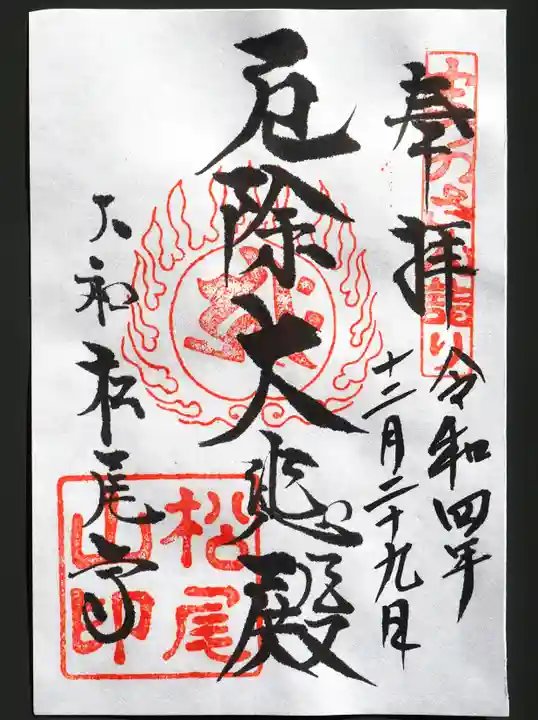 奉拝
令和四年
十二月二十九日
厄除大悲殿
大和松尾寺
松尾
山印